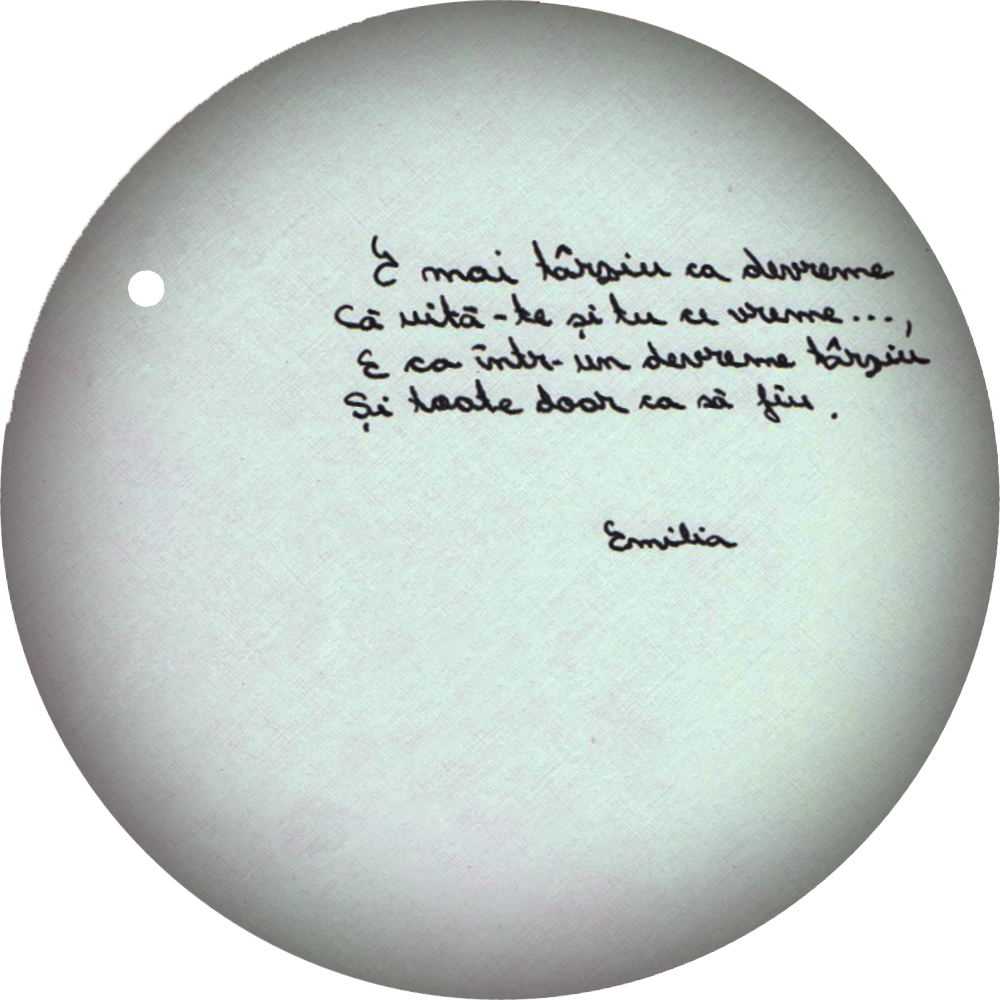 E mai târziu ca devreme
Că uită-te și tu ce vreme...,
E ca într-un devreme târziu
Și toate doar ca să fiu.
Emilia